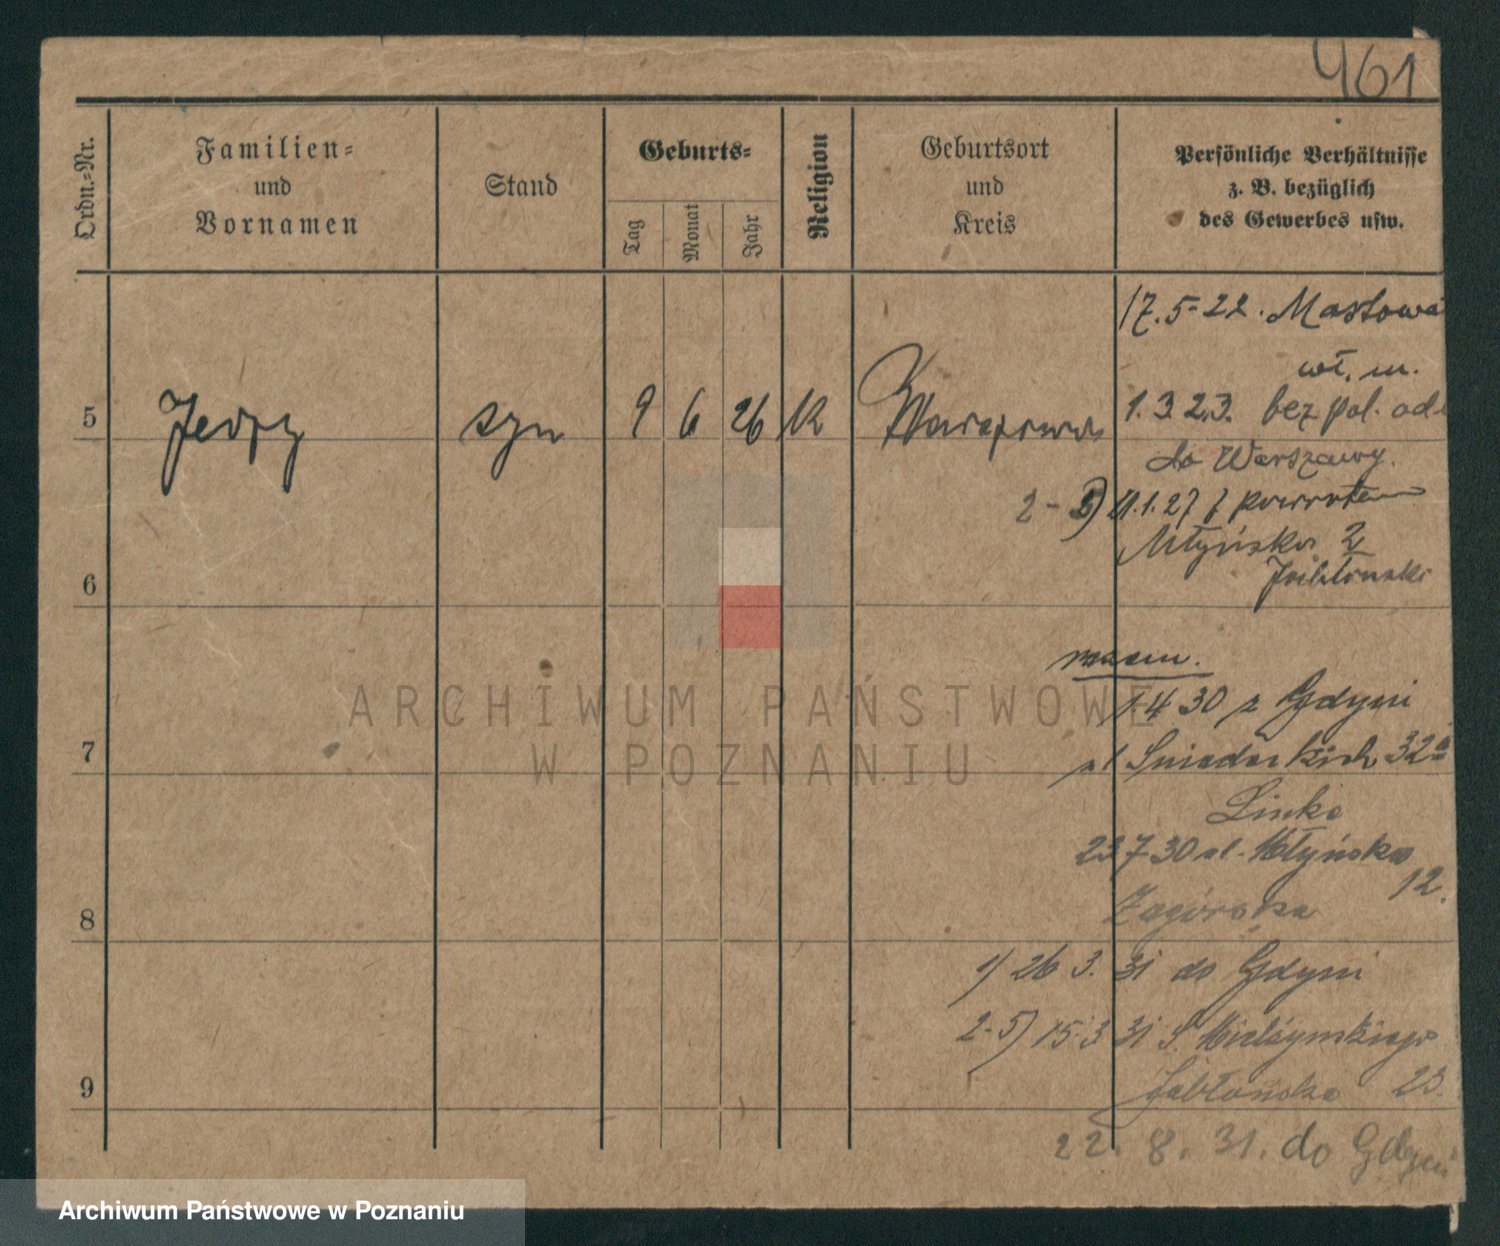 461
Ordn.-Nr.
Familien-
und
Vornamen
Stand
Geburts-
Tag
Monat
Jahr
Religion
Geburtsort
und
Kreis
Persönliche Verhältnisse
z. B. bezüglich
des Gewerbes usw.
17.5-22. Masłowa
wł. m.
5 Jerzy syn 9 6 26 Warszawa
1.3.23. bez pol. od.
do Warszawy.
2-5) 1.27 z powrotem
Młyńska 2
Jabłoński
6
razem.
1.4 30 z Gdyni
ul Śniadeckich 32a
7
Linke
23 7 30 ul. Młyńska
12.
Zagórska
8
1) 26 3. 31 do Gdyni
2-5) 15.3 31 Mielżyńskiego
Jabłońska 23.
9
22. 8. 31. do Gdyni
ARCHIWUM PAŃSTWOWE
W POZNANIU
Archiwum Państwowe w Poznaniu